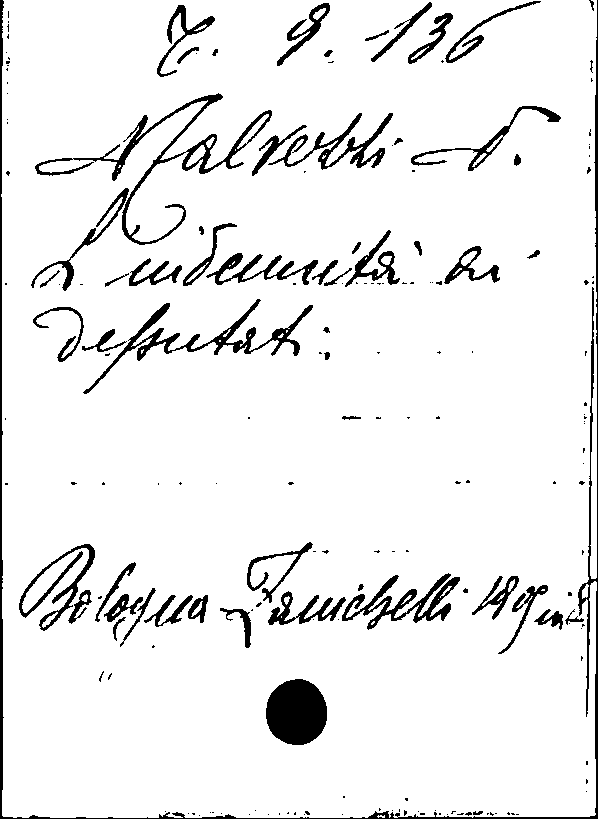 7. 9. 136
Malvezzi N.
L'indennità ai
deputati.
Bologna Zanichelli 19 in 8